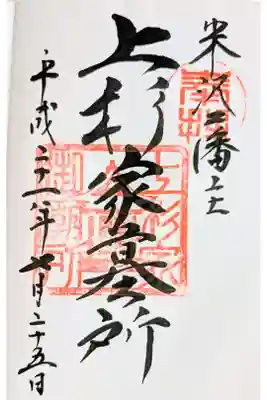 奉拝
米沢藩主
上杉家墓所
平成二十八年七月二十五日